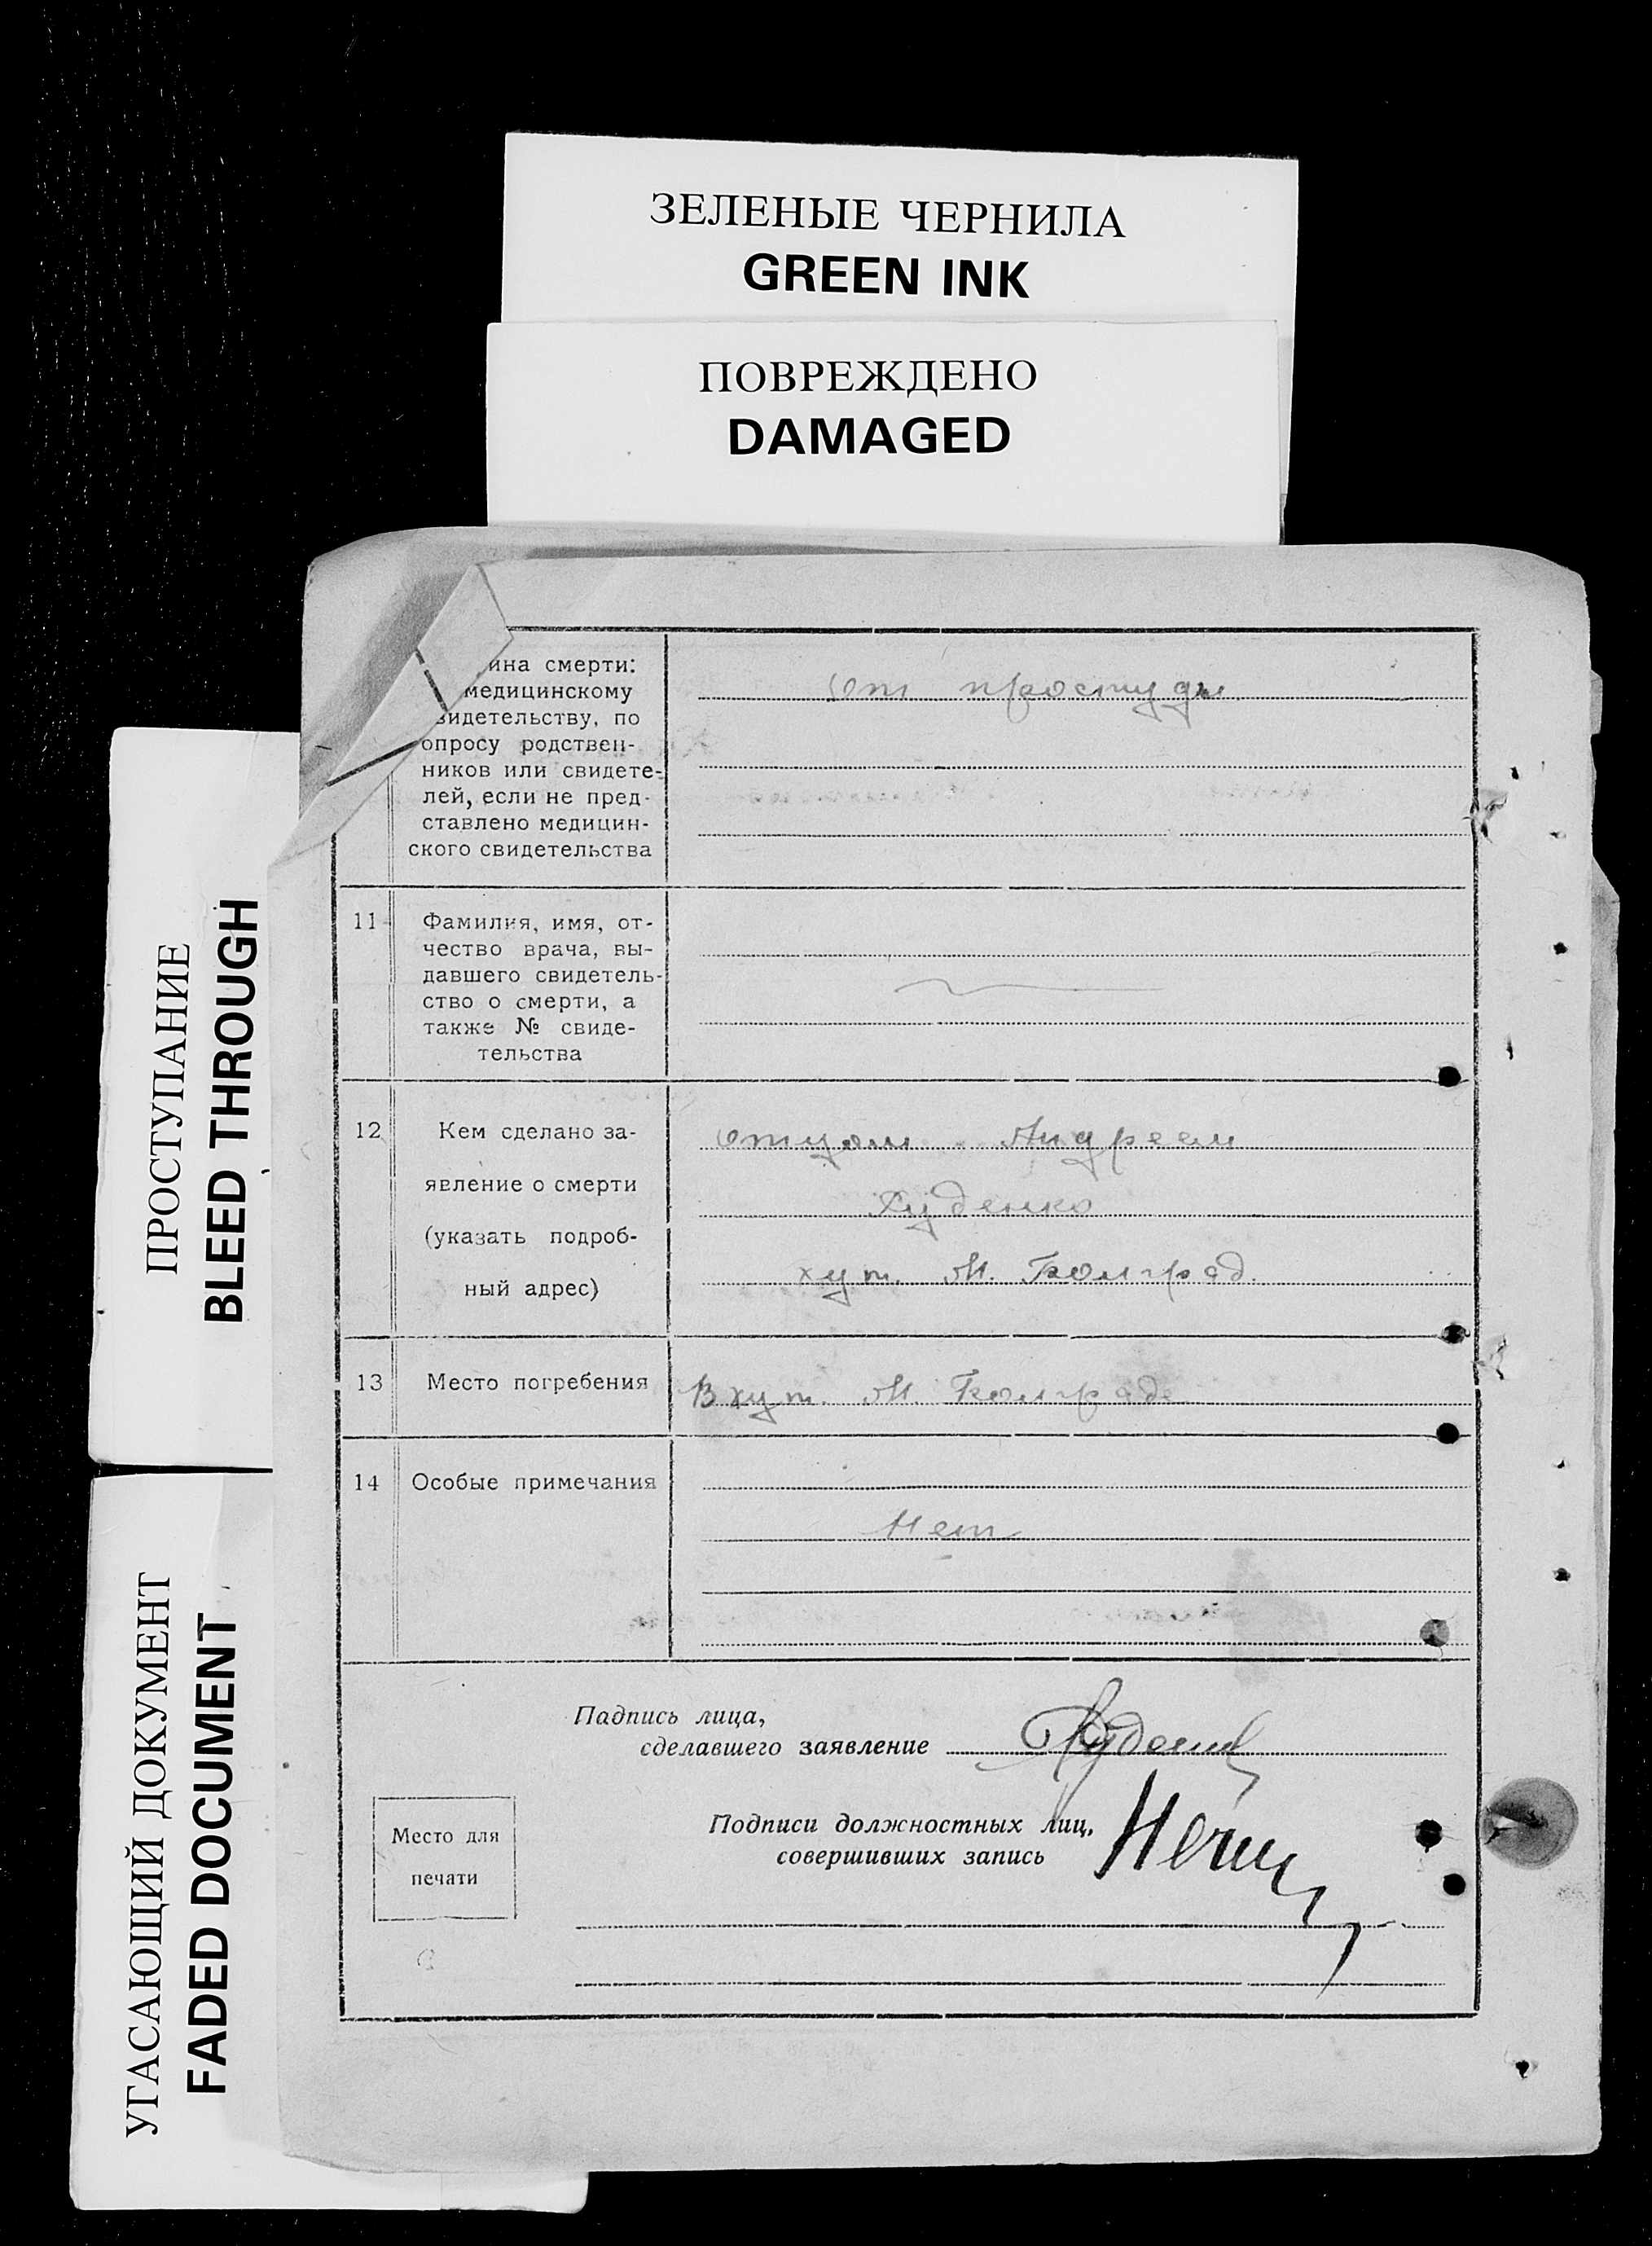 ЗЕЛЕНЫЕ ЧЕРНИЛА
GREEN INK
ПОВРЕЖДЕНО
DAMAGED
ПРОСТУПАНИЕ
BLEED THROUGH
УГАСАЮЩИЙ ДОКУМЕНТ
FADED DOCUMENT
ина смерти:
медицинскому
видетельству, по
опросу родствен-
ников или свидете-
лей, если не пред-
ставлено медицин-
ского свидетельства
от простуды
11
Фамилия, имя, от-
чество врача, вы-
давшего свидетель-
ство о смерти, а
также № свиде-
тельства
12
Кем сделано за-
явление о смерти
(указать подроб-
ный адрес)
отцом Андреем
Худенко
хут. М.
13
Место погребения
В хут. М.
14
Особые примечания
Нет
Падпись лица,
сделавшего заявление
Подписи должностных лиц,
совершивших запись
Место для
печати